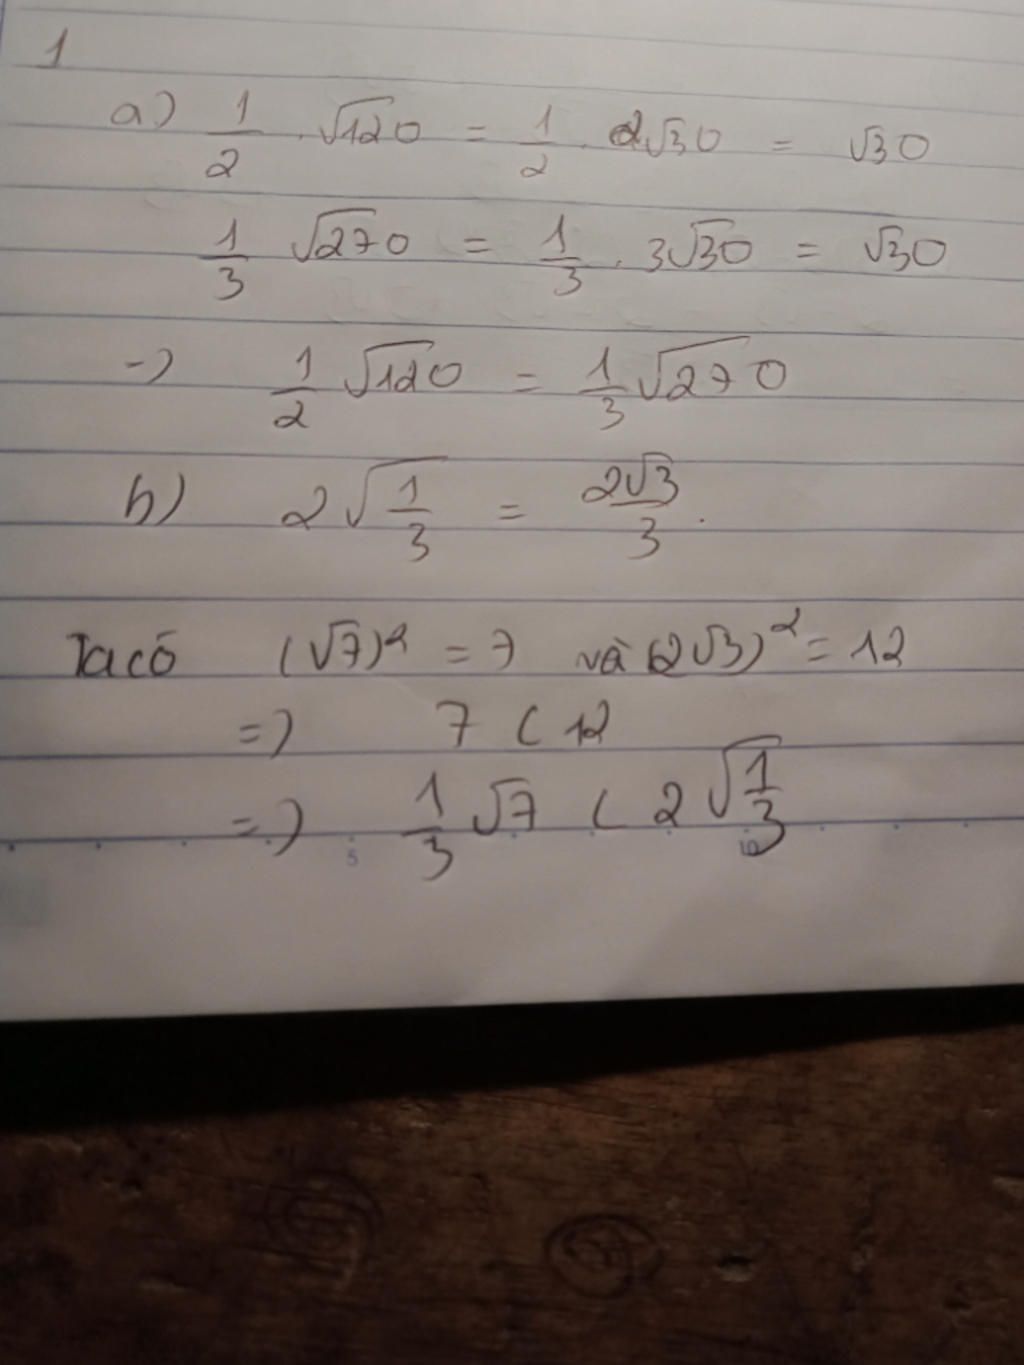 1
a) 1/2 . √120 = 1/2 . 2√30 = √30
1/3 √270 = 1/3 . 3√30 = √30
-) 1/2 √120 = 1/3 √270
b) 2√(1/3) = 2√3/3 .
Ta có (√7)² = 7 và (2√3)² = 12
=) 7 < 12
=) 1/3 √7 < 2√(1/3)
5 10